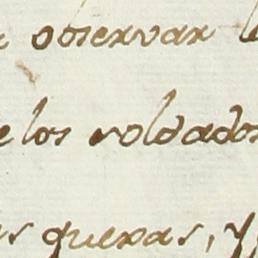 observar l
e los soldados
quexas, y